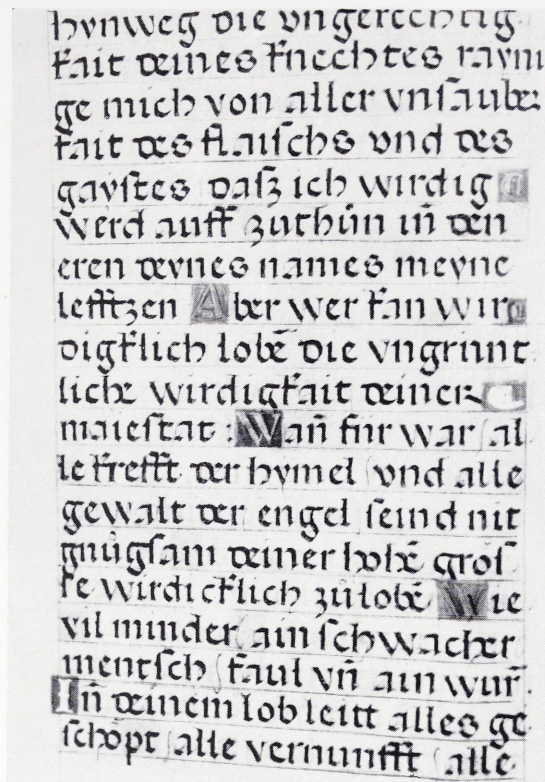 hynweg die vngerechtig
kait deines knechtes rayni
ge mich von aller vnsauber
kait des flaischs vnd des
gaystes dasz ich wirdig
werd auff zuthůn in̄ den
eren deynes names meyne
lefftzen Aber wer kan wir
digklich lobē die vngrunt
lichē wirdigkait deiner
maiestat : Wan̄ fur war / al
le krefft der hymel / vnd alle
gewalt der engel / seind nit
gnůgsam deiner hohē gros
se wirdicklich zůlobē Wie
vil minder / ain schwacher
mentsch / faul vn̄ ain wur̄.
In̄ deinem lob leitt alles ge
schöpt / alle vernunfft / alle